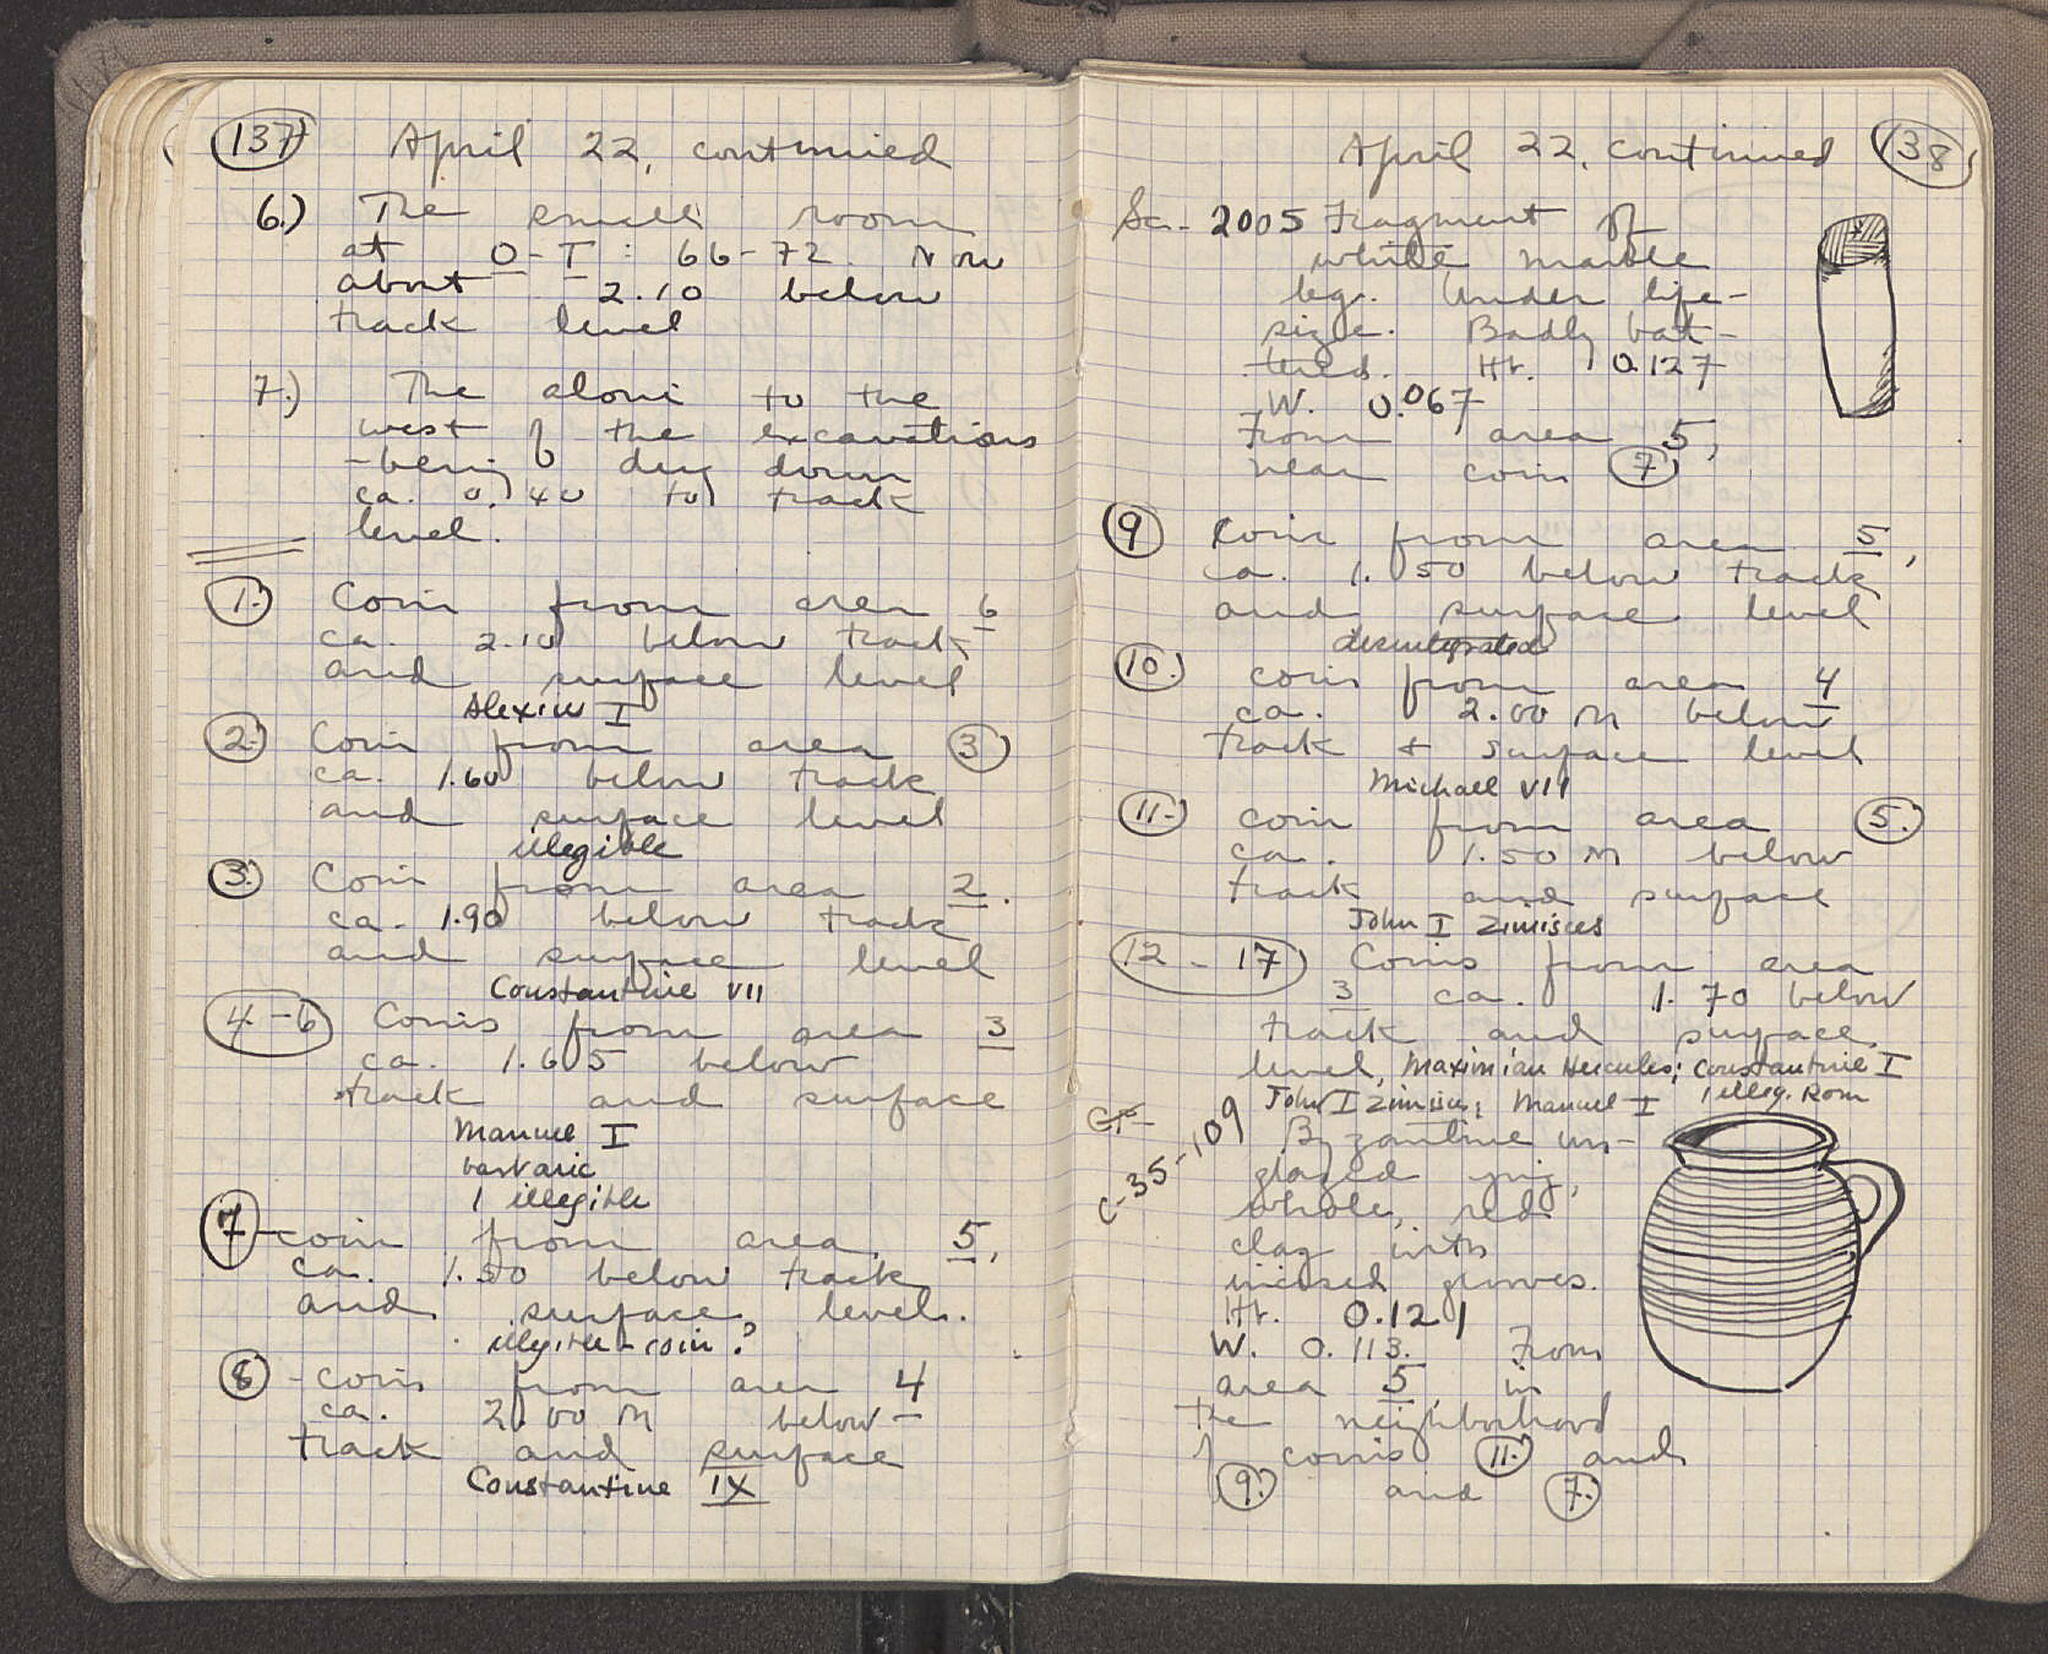 137 April 22, continued
6.) The small room
at O-T : 66-72. Now
about 2.10 below
track level
7.) The aloni to the
west of the excavations
- being dug down
ca. 0.40 to track
level.
1. Coin from area 6
ca. 2.10 below track
and surface level
Alexius I
2. Coin from area 3
ca. 1.60 below track
and surface level
illegible
3. Coin from area 2.
ca. 1.90 below track
and surface level
Constantine VII
4-6 Coins from area 3
ca. 1.65 below
track and surface
Manuel I
barbaric
1 illegible
7 - coin from area 5,
ca. 1.50 below track
and surface level.
illegible - coin?
8 - coin from area 4
ca. 2.00 m below
track and surface
Constantine IX
April 22, continued 138
Sc- 2005 Fragment of
white marble
leg. Under life-
size. Badly bat-
tered. Ht. 0.127
W. 0.067
From area 5,
near coin 7
9 Coin from area 5,
ca. 1.50 below track
and surface level
disintegrated
10. coin from area 4
ca. 2.00 m below
track + surface level
Michael VII
11. coin from area 5.
ca. 1.50 m below
track and surface
John I Zimisces
12 - 17 Coins from area
3 ca. 1.70 below
track and surface
level, Maximian Hercules; Constantine I
John I Zimisces; Manuel I 1 illeg. Rom
C-35-109 Byzantine un-
glazed jug,
whole, red
clay with
incised grooves.
Ht. 0.121
W. 0.113. From
area 5 in
the neighborhood
of coins 11. and
9. and 7.